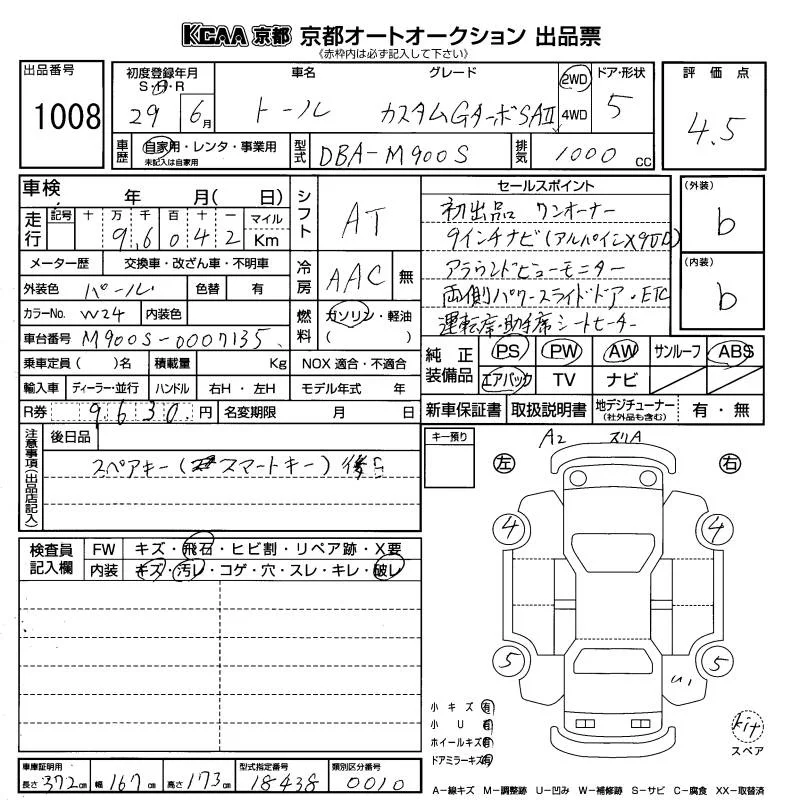 KCAA 京都 京都オートオークション 出品票
《赤枠内は必ず記入して下さい》
出品番号
1008
初度登録年月
S・H・R
29 6月
車名
トール
グレード
カスタムGターボSAⅡ
2WD
4WD
ドア・形状
5
評価点
4.5
車歴
自家用・レンタ・事業用
未記入は自家用
型式
DBA-M900S
排気
1000 cc
車検 年 月( 日)
走行
記号 十 万 千 百 十 一 マイル
9,6042 Km
メーター歴 交換車・改ざん車・不明車
外装色 パール 色替 有
カラーNo. W24 内装色
車台番号 M900S-0007135
乗車定員( )名 積載量 Kg NOX 適合・不適合
輸入車 ディーラー・並行 ハンドル 右H・左H モデル年式 年
R券 9630 円 名変期限 月 日
シフト
AT
冷房
AAC 無
燃料
ガソリン・軽油
( )
セールスポイント
初出品 ワンオーナー
9インチナビ(アルパインX9
アラウンドビューモニター
両側パワースライドドア・ETC
運転席・助手席シートヒーター
(外装)
b
(内装)
b
純正装備品
PS PW AW サンルーフ ABS
エアバック TV ナビ
新車保証書 取扱説明書 地デジチューナー(社外品も含む) 有・無
注意事項(出品店記入)
後日品
スペアキー(スマートキー)後日
キー預り
A2 スリA
左 右
4 4
5 5
U1
検査員記入欄
FW キズ・飛石・ヒビ割・リペア跡・X要
内装 キズ・汚レ・コゲ・穴・スレ・キレ・破レ
小キズ 有
小U 有
ホイールキズ 有
ドアミラーキズ 有
kit
スペア
車庫証明用
長さ 372cm 幅 167cm 高さ 173cm
型式指定番号
18438
類別区分番号
0010
A−線キズ M−調整跡 U−凹み W−補修跡 S−サビ C−腐食 XX−取替済